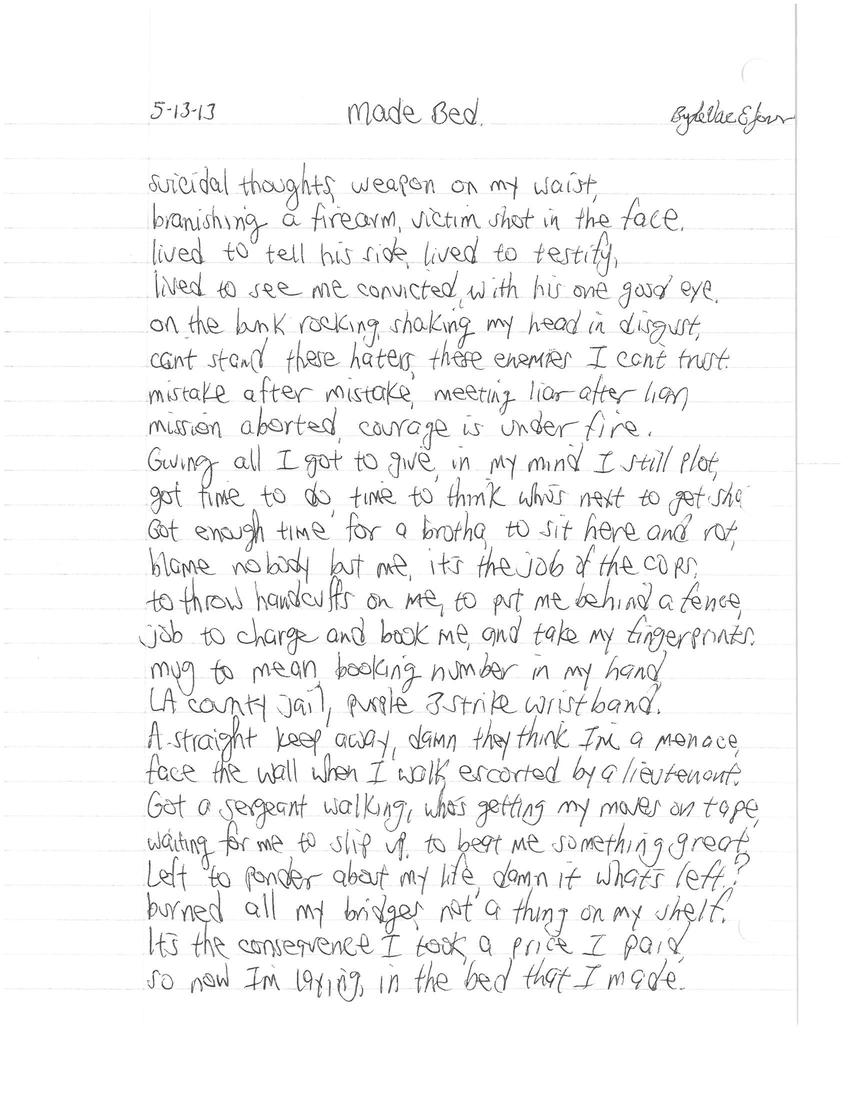 5-13-13 Made Bed. By
suicidal thoughts, weapon on my waist,
branishing a firearm, victim shot in the face.
lived to tell his side, lived to testify,
lived to see me convicted, with his one good eye.
on the bunk rocking, shaking my head in disgust,
cant stand these haters, these enemies I cant trust.
mistake after mistake, meeting liar after liar,
mission aborted, courage is under fire.
Giving all I got to give, in my mind I still plot,
got time to do, time to think who's next to get sho
Got enough time, for a brotha, to sit here and rot,
blame nobody but me, it's the job of the cops,
to throw handcuffs on me, to put me behind a fence,
job to charge and book me, and take my fingerprints.
mug to mean, booking number in my hand
LA county jail, purple 3 strike wristband.
A straight keep away, damn they think I'm a menace,
face the wall when I walk, escorted by a lieutenant.
Got a sergeant walking, who's getting my moves on tape,
waiting for me to slip up, to beat me something great.
Left to ponder about my life, damn it what's left?
burned all my bridges, not a thing on my shelf.
It's the consequence I took, a price I paid,
so now I'm laying, in the bed that I made.